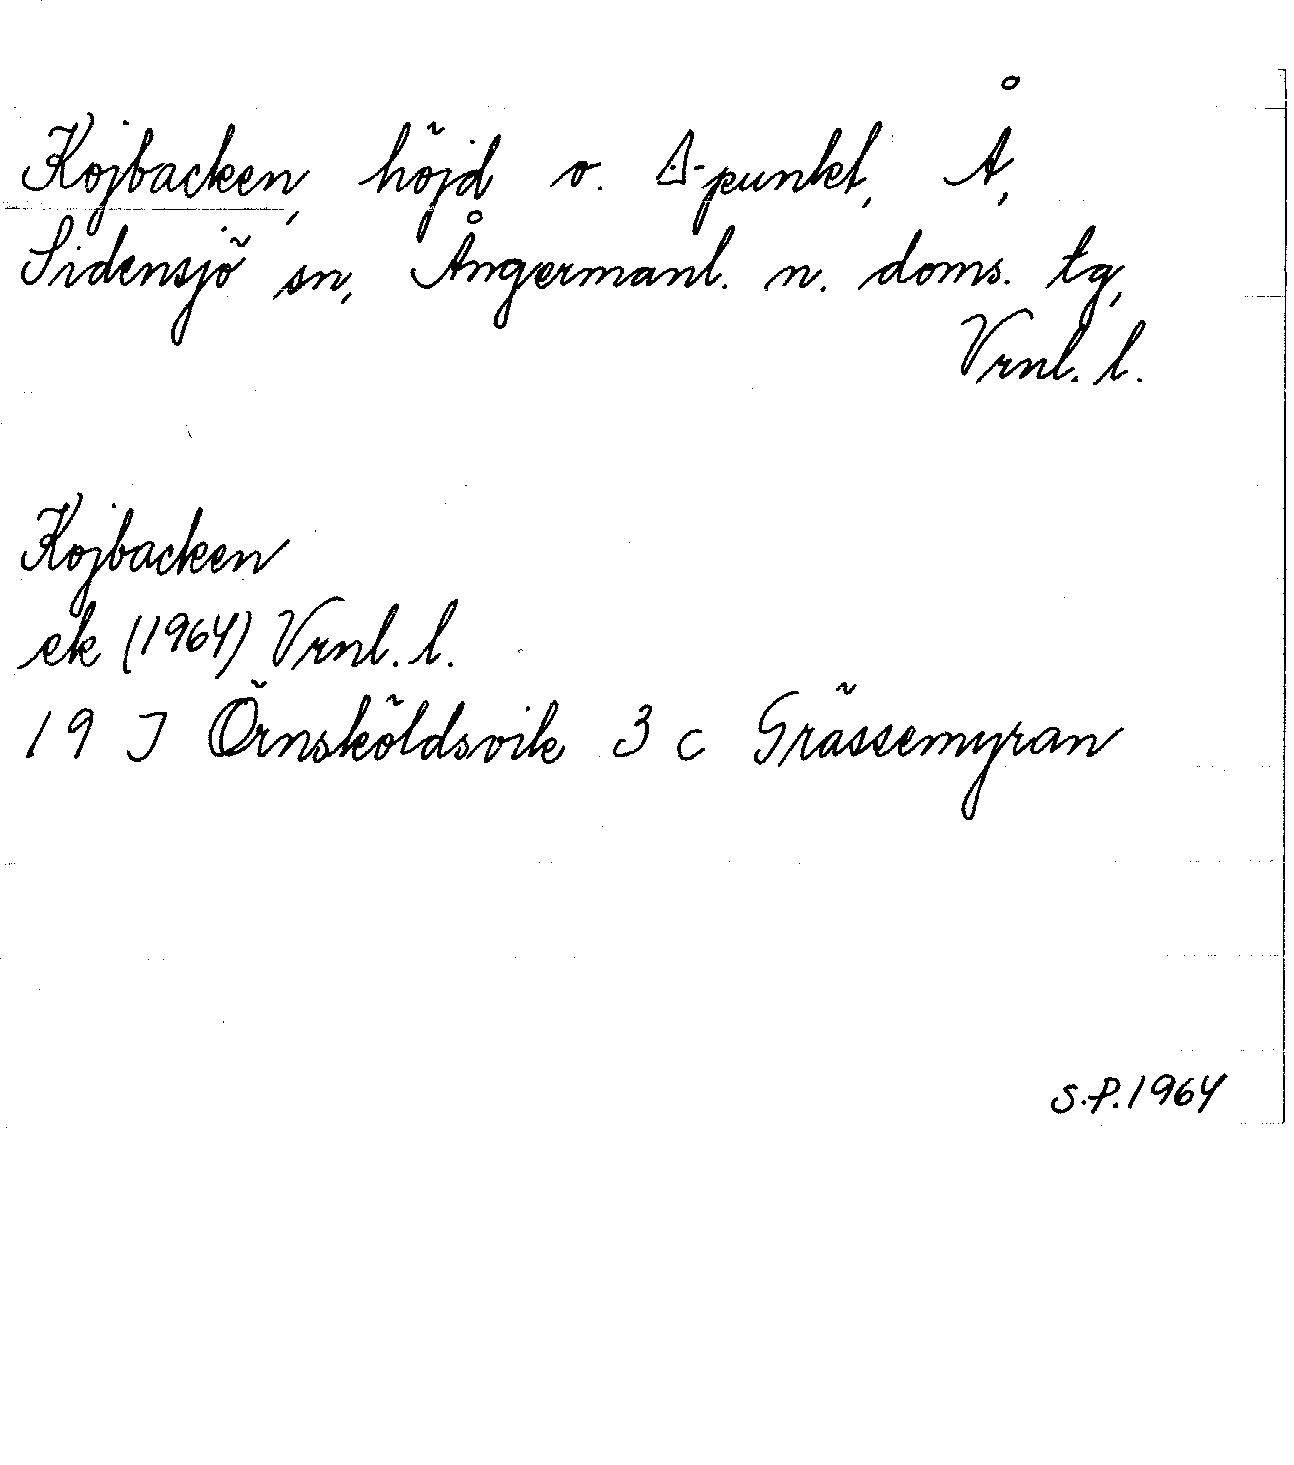 Kojbacken, höjd o. △-punkt, Å,
Sidensjö sn, Ångermanl. n. doms. tg,
Vrnl. l.
Kojbacken
ek (1964) Vrnl. l.
19 J Örnsköldsvik 3 c Grässemyran
S.P. 1964